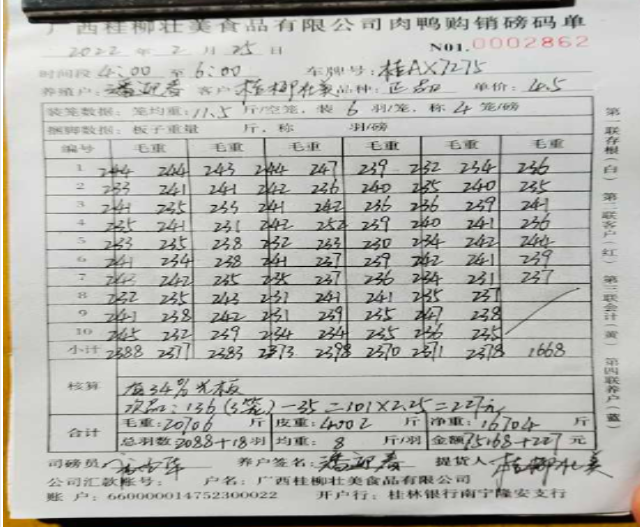 广西桂柳壮美食品有限公司肉鸭购销磅码单
2022 年 2 月 25 日 NO1.0002862
时间段 4:00 至 6:00 车牌号:桂AX7275
养殖户: 客户 桂柳壮美 品种: 正品 单价: 4.5
装笼数据: 笼均重: 11.5 斤/空笼, 装 6 羽/笼, 称 4 笼/磅
捆脚数据: 板子重量 斤, 称 羽/磅
编号 毛重 毛重 毛重 毛重 毛重
1 244 244 243 244 247 239 232 234 236
2 233 241 241 242 236 240 235 240 235
3 241 235 233 241 242 236 236 239 241
4 235 241 231 242 252 239 240 241 236
5 233 235 238 232 233 230 234 242 244
6 241 234 238 241 237 239 242 241 239
7 242 242 235 235 237 236 234 231 237
8 232 235 243 231 241 241 235 237
9 241 238 242 231 239 235 247 238
10 245 232 239 234 234 235 236 235
小计 2388 2377 2383 2373 2398 2370 2371 2378 1668
核算 34%
次品: 136(3笼)-35=101×2.25=227元
合计 毛重: 20706 斤 皮重: 4002 斤 净重: 16704 斤
总羽数 2088+18 羽 均重: 8 斤/羽 金额 75168+227 元
司磅员 养户签名: 提货人: 桂柳壮美
公司汇款账号: 户名: 广西桂柳壮美食品有限公司
账 户: 660000014752300022 开户行: 桂林银行南宁隆安支行
第一联存根(白) 第二联客户(红) 第三联会计(黄) 第四联养户(蓝)